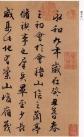 永和九年歲在癸丑暮春
之初會于會稽山陰之蘭亭
脩禊事也群賢畢至少長
咸集此地有崇山峻領茂